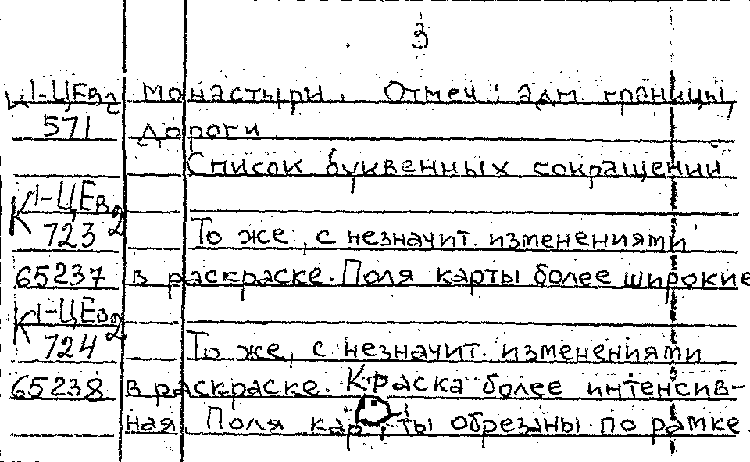 3
К1-ЦЕв2 монастыри. Отмеч: адм. границы,
571 дороги
Список буквенных сокращений
К1-ЦЕв2
723 То же, с незначит изменениями
65237 в раскраске. Поля карты более широкие
К1-ЦЕв2
724 То же, с незначит изменениями
65238 в раскраске. Краска более интенсив-
ная. Поля карты обрезаны по рамке